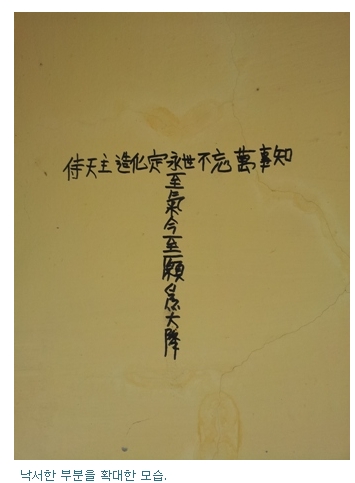 侍天主 造化定 永世不忘 萬事知
至氣今至願爲大降
낙서한 부분을 확대한 모습.